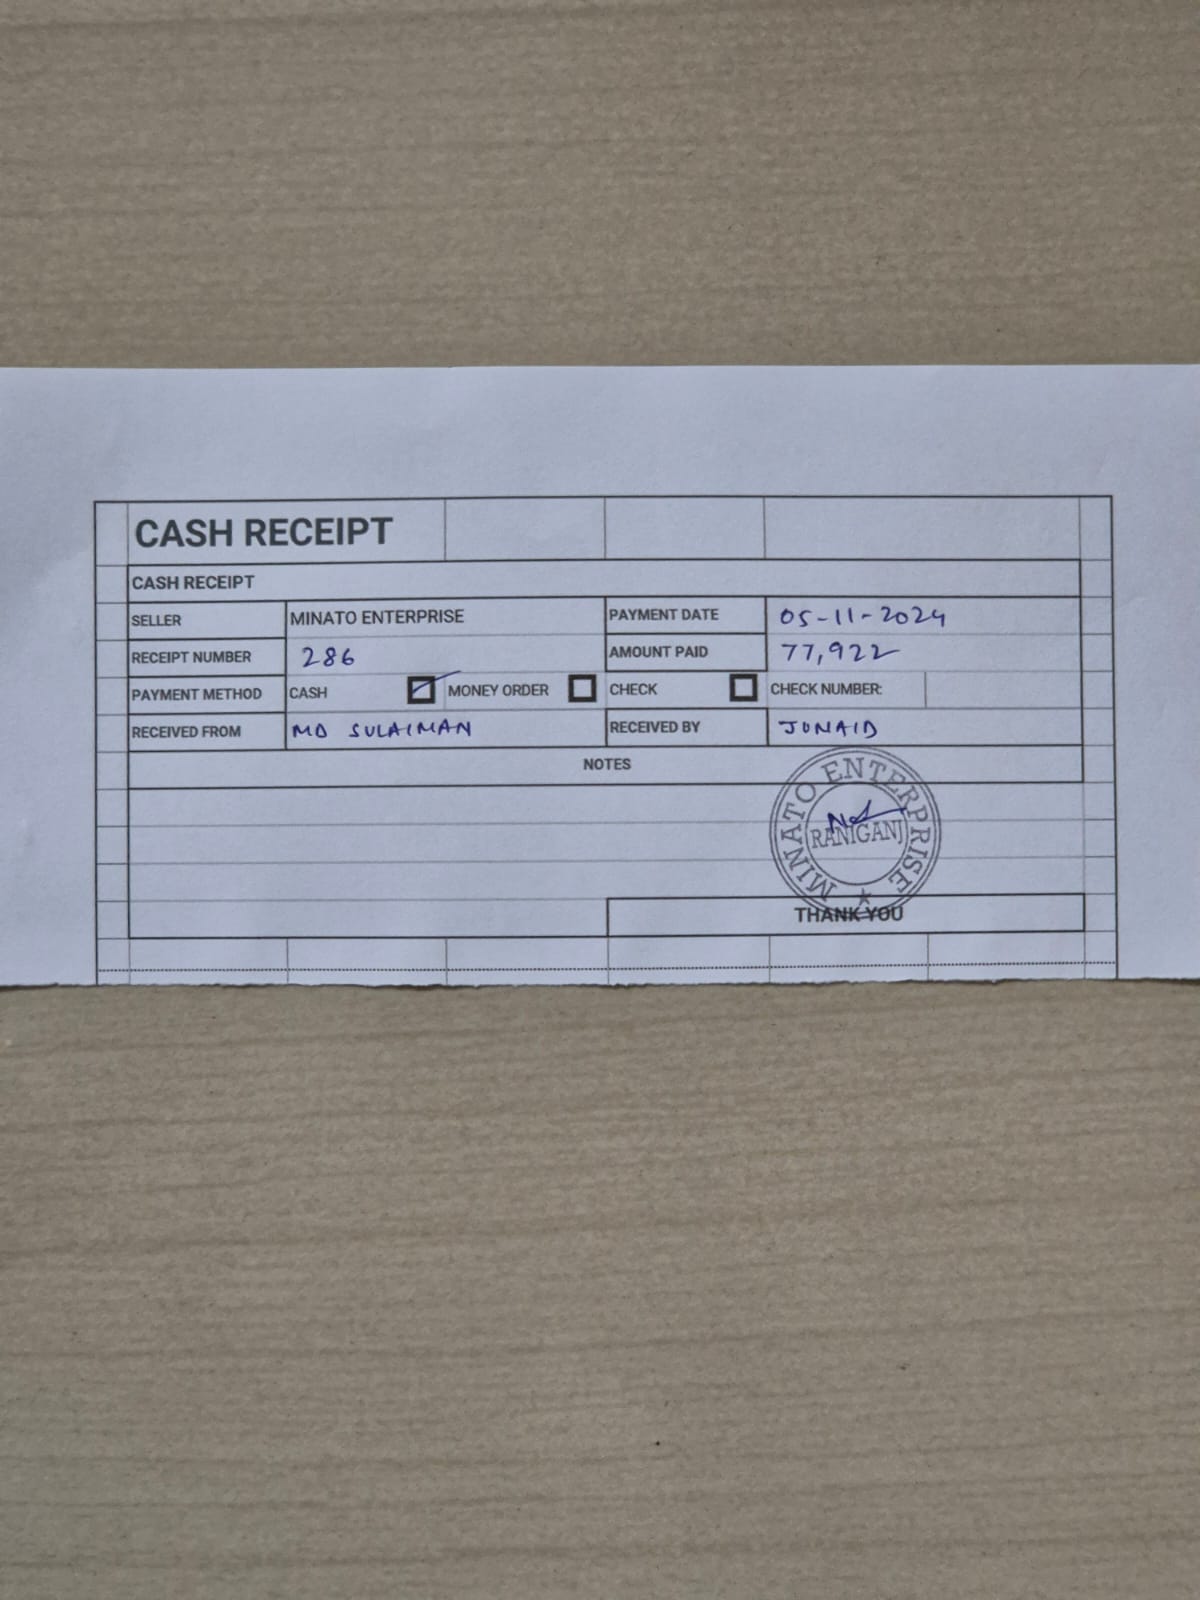 CASH RECEIPT
CASH RECEIPT
SELLER MINATO ENTERPRISE PAYMENT DATE 05-11-2024
RECEIPT NUMBER 286 AMOUNT PAID 77,922
PAYMENT METHOD CASH MONEY ORDER CHECK CHECK NUMBER:
RECEIVED FROM MD SULAIMAN RECEIVED BY JUNAID
NOTES
MINATO ENTERPRISE
RANIGANJ
THANK YOU